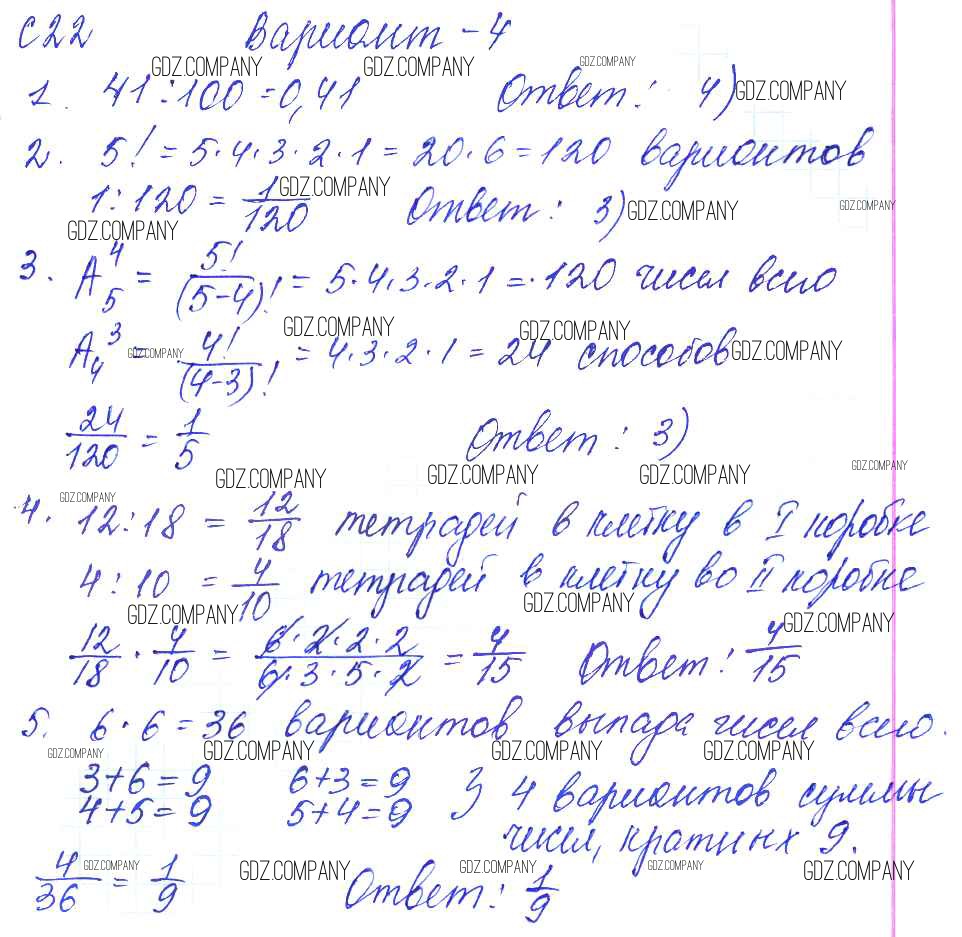 С22 Вариант - 4
GDZ.COMPANY GDZ.COMPANY GDZ.COMPANY
1. 41 : 100 = 0,41 Ответ: 4) GDZ.COMPANY
2. 5! = 5·4·3·2·1 = 20·6 = 120 вариантов
1 : 120 = 1/120 GDZ.COMPANY Ответ: 3) GDZ.COMPANY GDZ.COMPANY
GDZ.COMPANY
3. A₅⁴ = 5!/(5-4)! = 5·4·3·2·1 = 120 чисел всего
GDZ.COMPANY GDZ.COMPANY
A₄³ = GDZ.COMPANY 4!/(4-3)! = 4·3·2·1 = 24 способов GDZ.COMPANY
24/120 = 1/5 Ответ: 3)
GDZ.COMPANY GDZ.COMPANY GDZ.COMPANY GDZ.COMPANY
GDZ.COMPANY
4. 12 : 18 = 12/18 тетрадей в клетку в I коробке
4 : 10 = 4/10 тетрадей в клетку во II коробке
GDZ.COMPANY GDZ.COMPANY GDZ.COMPANY
12/18 · 4/10 = 6·2·2·2/6·3·5·2 = 4/15 Ответ: 4/15
5. 6·6 = 36 вариантов выпада чисел всего.
GDZ.COMPANY GDZ.COMPANY GDZ.COMPANY GDZ.COMPANY
3+6=9 6+3=9 } 4 вариантов суммы
4+5=9 5+4=9 чисел, кратных 9.
4/36 GDZ.COMPANY = 1/9 GDZ.COMPANY Ответ: 1/9 GDZ.COMPANY GDZ.COMPANY GDZ.COMPANY